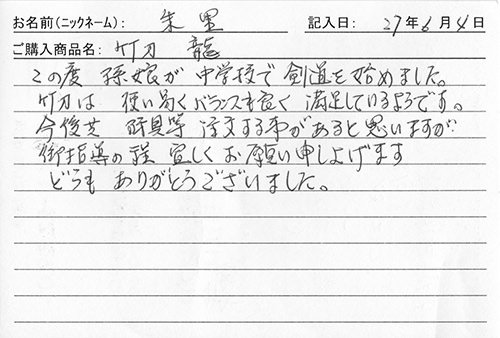 お名前(ニックネーム): 朱里 記入日: 27年6月4日
ご購入商品名: 竹刀 龍
この度 孫娘が 中学校で 剣道を始めました。
竹刀は 使い易くバランスも良く 満足しているようです。
今後共 防具等 注文する事があると思いますが
御指導の程 宜しくお願い申し上げます
どうも ありがとうございました。